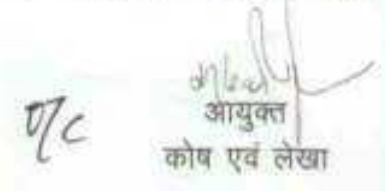 आयुक्त
O/c
कोष एवं लेखा